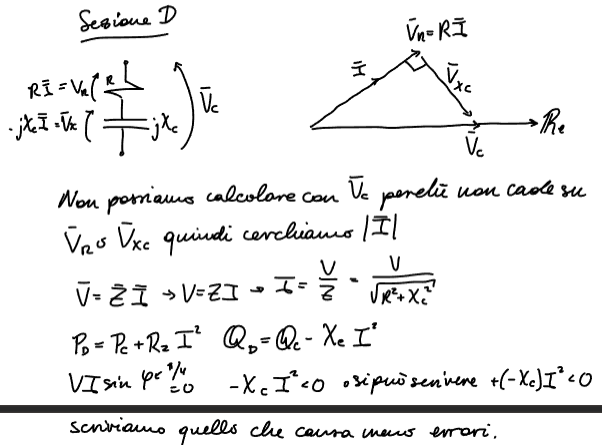 Sezione D
V̄R = RĪ
Ī
V̄xc
ℝe
V̄c
RĪ = VR R
-jXcĪ = V̄x -jXc
V̄c
Non possiamo calcolare con V̄c perché non cade su
V̄R o V̄xc quindi cerchiamo |Ī|
V̄ = Z̄ Ī → V = ZI → I = V/Z = V/√(R²+Xc²)
PD = PC + R2 I² QD = QC - Xc I²
VI sin φ = 0 -Xc I² < 0 o si può scrivere +(-Xc)I² < 0
scriviamo quello che causa meno errori.